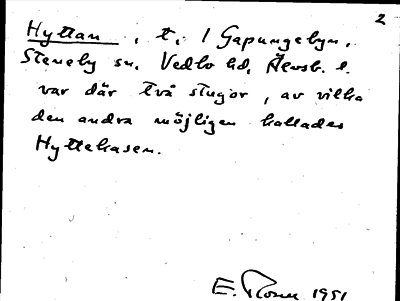 2
Hyttan, t. i Gapungebyn,
Steneby sn, Vedbo hd, Älvsb. l.
var där två stugor, av vilka
den andra möjligen kallades
Hyttekasen.
E. 1951